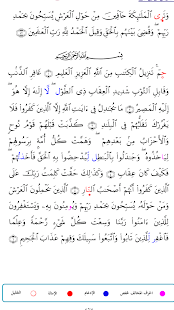 وَتَرَى ٱلْمَلَٰٓئِكَةَ حَآفِّينَ مِنْ حَوْلِ ٱلْعَرْشِ يُسَبِّحُونَ بِحَمْدِ
رَبِّهِمْ وَقُضِيَ بَيْنَهُم بِٱلْحَقِّ وَقِيلَ ٱلْحَمْدُ لِلَّهِ رَبِّ ٱلْعَٰلَمِينَ
بِسْمِ ٱللَّهِ ٱلرَّحْمَٰنِ ٱلرَّحِيمِ
حمٓ تَنزِيلُ ٱلْكِتَٰبِ مِنَ ٱللَّهِ ٱلْعَزِيزِ ٱلْعَلِيمِ غَافِرِ ٱلذَّنۢبِ
وَقَابِلِ ٱلتَّوْبِ شَدِيدِ ٱلْعِقَابِ ذِي ٱلطَّوْلِ لَآ إِلَٰهَ إِلَّا هُوَ
إِلَيْهِ ٱلْمَصِيرُ مَا يُجَٰدِلُ فِيٓ ءَايَٰتِ ٱللَّهِ إِلَّا ٱلَّذِينَ كَفَرُوا۟ فَلَا يَغْرُرْكَ
تَقَلُّبُهُمْ فِي ٱلْبِلَٰدِ كَذَّبَتْ قَبْلَهُمْ قَوْمُ نُوحٍ
وَٱلْأَحْزَابُ مِنۢ بَعْدِهِمْ وَهَمَّتْ كُلُّ أُمَّةٍۭ بِرَسُولِهِمْ
لِيَأْخُذُوهُ وَجَٰدَلُوا۟ بِٱلْبَٰطِلِ لِيُدْحِضُوا۟ بِهِ ٱلْحَقَّ فَأَخَذتُّهُمْ
فَكَيْفَ كَانَ عِقَابِ وَكَذَٰلِكَ حَقَّتْ كَلِمَتُ رَبِّكَ عَلَى
ٱلَّذِينَ كَفَرُوٓا۟ أَنَّهُمْ أَصْحَٰبُ ٱلنَّارِ ٱلَّذِينَ يَحْمِلُونَ ٱلْعَرْشَ
وَمَنْ حَوْلَهُۥ يُسَبِّحُونَ بِحَمْدِ رَبِّهِمْ وَيُؤْمِنُونَ بِهِۦ وَيَسْتَغْفِرُونَ
لِلَّذِينَ ءَامَنُوا۟ رَبَّنَا وَسِعْتَ كُلَّ شَيْءٍ رَّحْمَةً وَعِلْمًا
فَٱغْفِرْ لِلَّذِينَ تَابُوا۟ وَٱتَّبَعُوا۟ سَبِيلَكَ وَقِهِمْ عَذَابَ ٱلْجَحِيمِ
الادغام التقليل